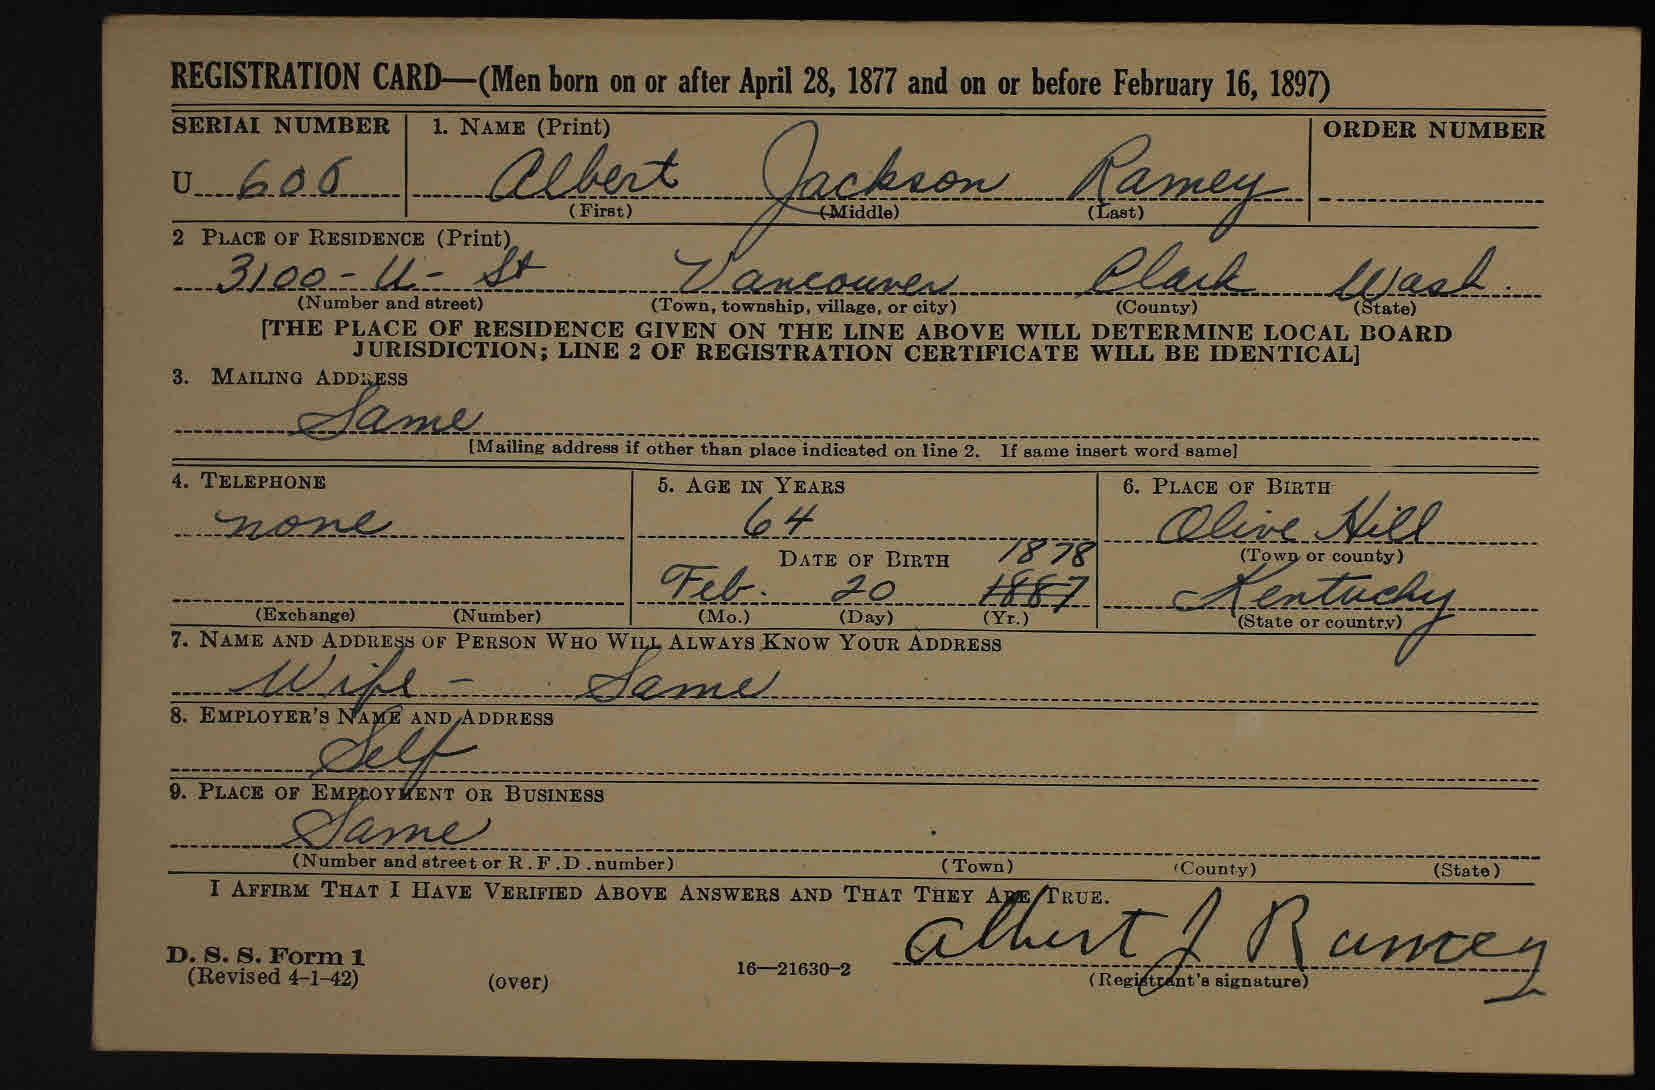 REGISTRATION CARD—(Men born on or after April 28, 1877 and on or before February 16, 1897)
SERIAL NUMBER 1. NAME (Print) ORDER NUMBER
U 606 Albert Jackson Ramey
(First) (Middle) (Last)
2 PLACE OF RESIDENCE (Print)
3100-U-St Vancouver Clark Wash.
(Number and street) (Town, township, village, or city) (County) (State)
[THE PLACE OF RESIDENCE GIVEN ON THE LINE ABOVE WILL DETERMINE LOCAL BOARD
JURISDICTION; LINE 2 OF REGISTRATION CERTIFICATE WILL BE IDENTICAL]
3. MAILING ADDRESS
Same
[Mailing address if other than place indicated on line 2. If same insert word same]
4. TELEPHONE 5. AGE IN YEARS 6. PLACE OF BIRTH
none 64 Olive Hill
DATE OF BIRTH 1878 (Town or county)
Feb. 20 1887 Kentucky
(Exchange) (Number) (Mo.) (Day) (Yr.) (State or country)
7. NAME AND ADDRESS OF PERSON WHO WILL ALWAYS KNOW YOUR ADDRESS
Wife - Same
8. EMPLOYER'S NAME AND ADDRESS
Self
9. PLACE OF EMPLOYMENT OR BUSINESS
Same
(Number and street or R.F.D. number) (Town) (County) (State)
I AFFIRM THAT I HAVE VERIFIED ABOVE ANSWERS AND THAT THEY ARE TRUE.
Albert J Ramey
D. S. S. Form 1
(Revised 4-1-42) (over) 16—21630-2 (Registrant's signature)